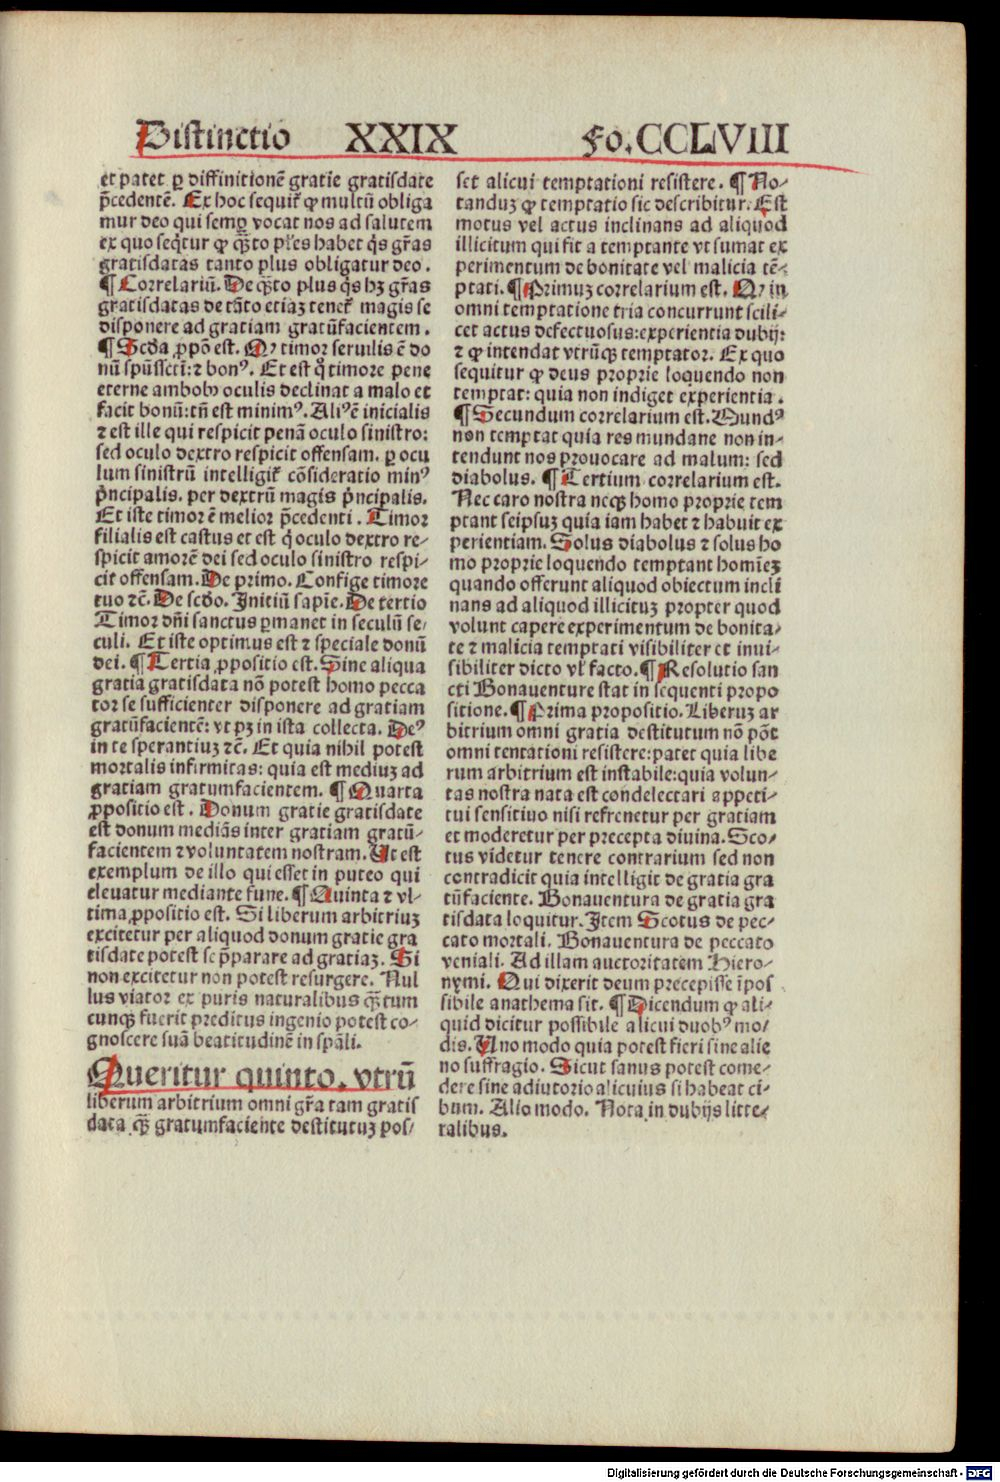 Distinctio XXIX Fo.CCLVIII
et patet ꝑ diffinitionē gratie gratisdate
p̄cedentē. Ex hoc sequit᷑ ꝙ multū obliga
mur deo qui semꝑ vocat nos ad salutem
ex quo seq̇tur ꝙ q̄ꝫto pl̄es habet q̇s gr̄as
gratisdatas tanto plus obligatur deo.
¶ Correlariū. De q̄ꝫto plus q̇s hꝫ gr̄as
gratisdatas de tāto etiaꝫ tenet᷑ magis se
disponere ad gratiam gratūfacientem.
¶ Scd̄a ꝓpō est. Qꝫ timor seruilis ē do
nū spūssctī: ⁊ bonꝰ. Et est q̇ timore pene
eterne ambobꝫ oculis declinat a malo et
facit bonū: tn̄ est minimꝰ. Aliꝰ ē inicialis
⁊ est ille qui respicit penā oculo sinistro:
sed oculo dextro respicit offensam. ꝑ ocu
lum sinistrū intelligit᷑ cōsideratio minꝰ
p̄ncipalis. per dextrū magis p̄ncipalis.
Et iste timor ē melior p̄cedenti. Timor
filialis est castus et est q̇ oculo dextro re-
spicit amorē dei sed oculo sinistro respi-
cit offensam. De primo. Confige timore
tuo ⁊c̄. De scd̄o. Initiū sapīe. De tertio
Timor dn̄i sanctus ꝑmanet in seculū se-
culi. Et iste optimus est ⁊ speciale donū
dei. ¶ Tertia ꝓpositio est. Sine aliqua
gratia gratisdata nō potest homo pecca
tor se sufficienter disponere ad gratiam
gratūfacientē: vt pꝫ in ista collecta. Deꝰ
in te sperantiuꝫ ⁊c̄. Et quia nihil potest
mortalis infirmitas: quia est mediuꝫ ad
gratiam gratumfacientem. ¶ Quarta
ꝓpositio est. Donum gratie gratisdate
est donum mediās inter gratiam gratū-
facientem ⁊ voluntatem nostram. Ut est
exemplum de illo qui esset in puteo qui
eleuatur mediante fune. ¶ Quinta ⁊ vl-
tima ꝓpositio est. Si liberum arbitriuꝫ
excitetur per aliquod donum gratie gra
tisdate potest se p̄parare ad gratiaꝫ. Si
non excitetur non potest resurgere. Nul
lus viator ex puris naturalibus q̄ꝫtum
cunqꝫ fuerit preditus ingenio potest co-
gnoscere suā beatitudinē in spāli.
Queritur quinto. vtrū
liberum arbitrium omni gr̄a tam gratis
data q̄ꝫ gratumfaciente destitutuꝫ pos-
set alicui temptationi resistere. ¶ No-
tanduꝫ ꝙ temptatio sic describitur. Est
motus vel actus inclinans ad aliquod
illicitum qui fit a temptante vt sumat ex
perimentum de bonitate vel malicia tē-
ptati. ¶ Primuꝫ correlarium est. Qꝫ in
omni temptatione tria concurrunt scili-
cet actus defectuosus: experientia dubij:
⁊ ꝙ intendat vtrūqꝫ temptator. Ex quo
sequitur ꝙ deus proprie loquendo non
temptat: quia non indiget experientia.
¶ Secundum correlarium est. Mundꝰ
non temptat quia res mundane non in-
tendunt nos prouocare ad malum: sed
diabolus. ¶ Tertium correlarium est.
Nec caro nostra neqꝫ homo proprie tem
ptant seipsuꝫ quia iam habet ⁊ habuit ex
perientiam. Solus diabolus ⁊ solus ho
mo proprie loquendo temptant homineꝫ
quando offerunt aliquod obiectum incli
nans ad aliquod illicituꝫ propter quod
volunt capere experimentum de bonita-
te ⁊ malicia temptati visibiliter et inui-
sibiliter dicto vl̓ facto. ¶ Resolutio san
cti Bonauenture stat in sequenti propo
sitione. ¶ Prima propositio. Liberuꝫ ar
bitrium omni gratia destitutum nō pōt
omni tentationi resistere: patet quia libe
rum arbitrium est instabile: quia volun-
tas nostra nata est condelectari appeti-
tui sensitiuo nisi refrenetur per gratiam
et moderetur per precepta diuina. Sco-
tus videtur tenere contrarium sed non
contradicit quia intelligit de gratia gra
tūfaciente. Bonauentura de gratia gra
tisdata loquitur. Item Scotus de pec-
cato mortali. Bonauentura de peccato
veniali. Ad illam auctoritatem Hiero-
nymi. Qui dixerit deum precepisse īpos
sibile anathema sit. ¶ Dicendum ꝙ ali-
quid dicitur possibile alicui duobꝰ mo-
dis. Uno modo quia potest fieri sine alie
no suffragio. Sicut sanus potest come-
dere sine adiutorio alicuius si habeat ci-
bum. Alio modo. Nota in dubijs litte-
ralibus.
Digitalisierung gefördert durch die Deutsche Forschungsgemeinschaft - DFG